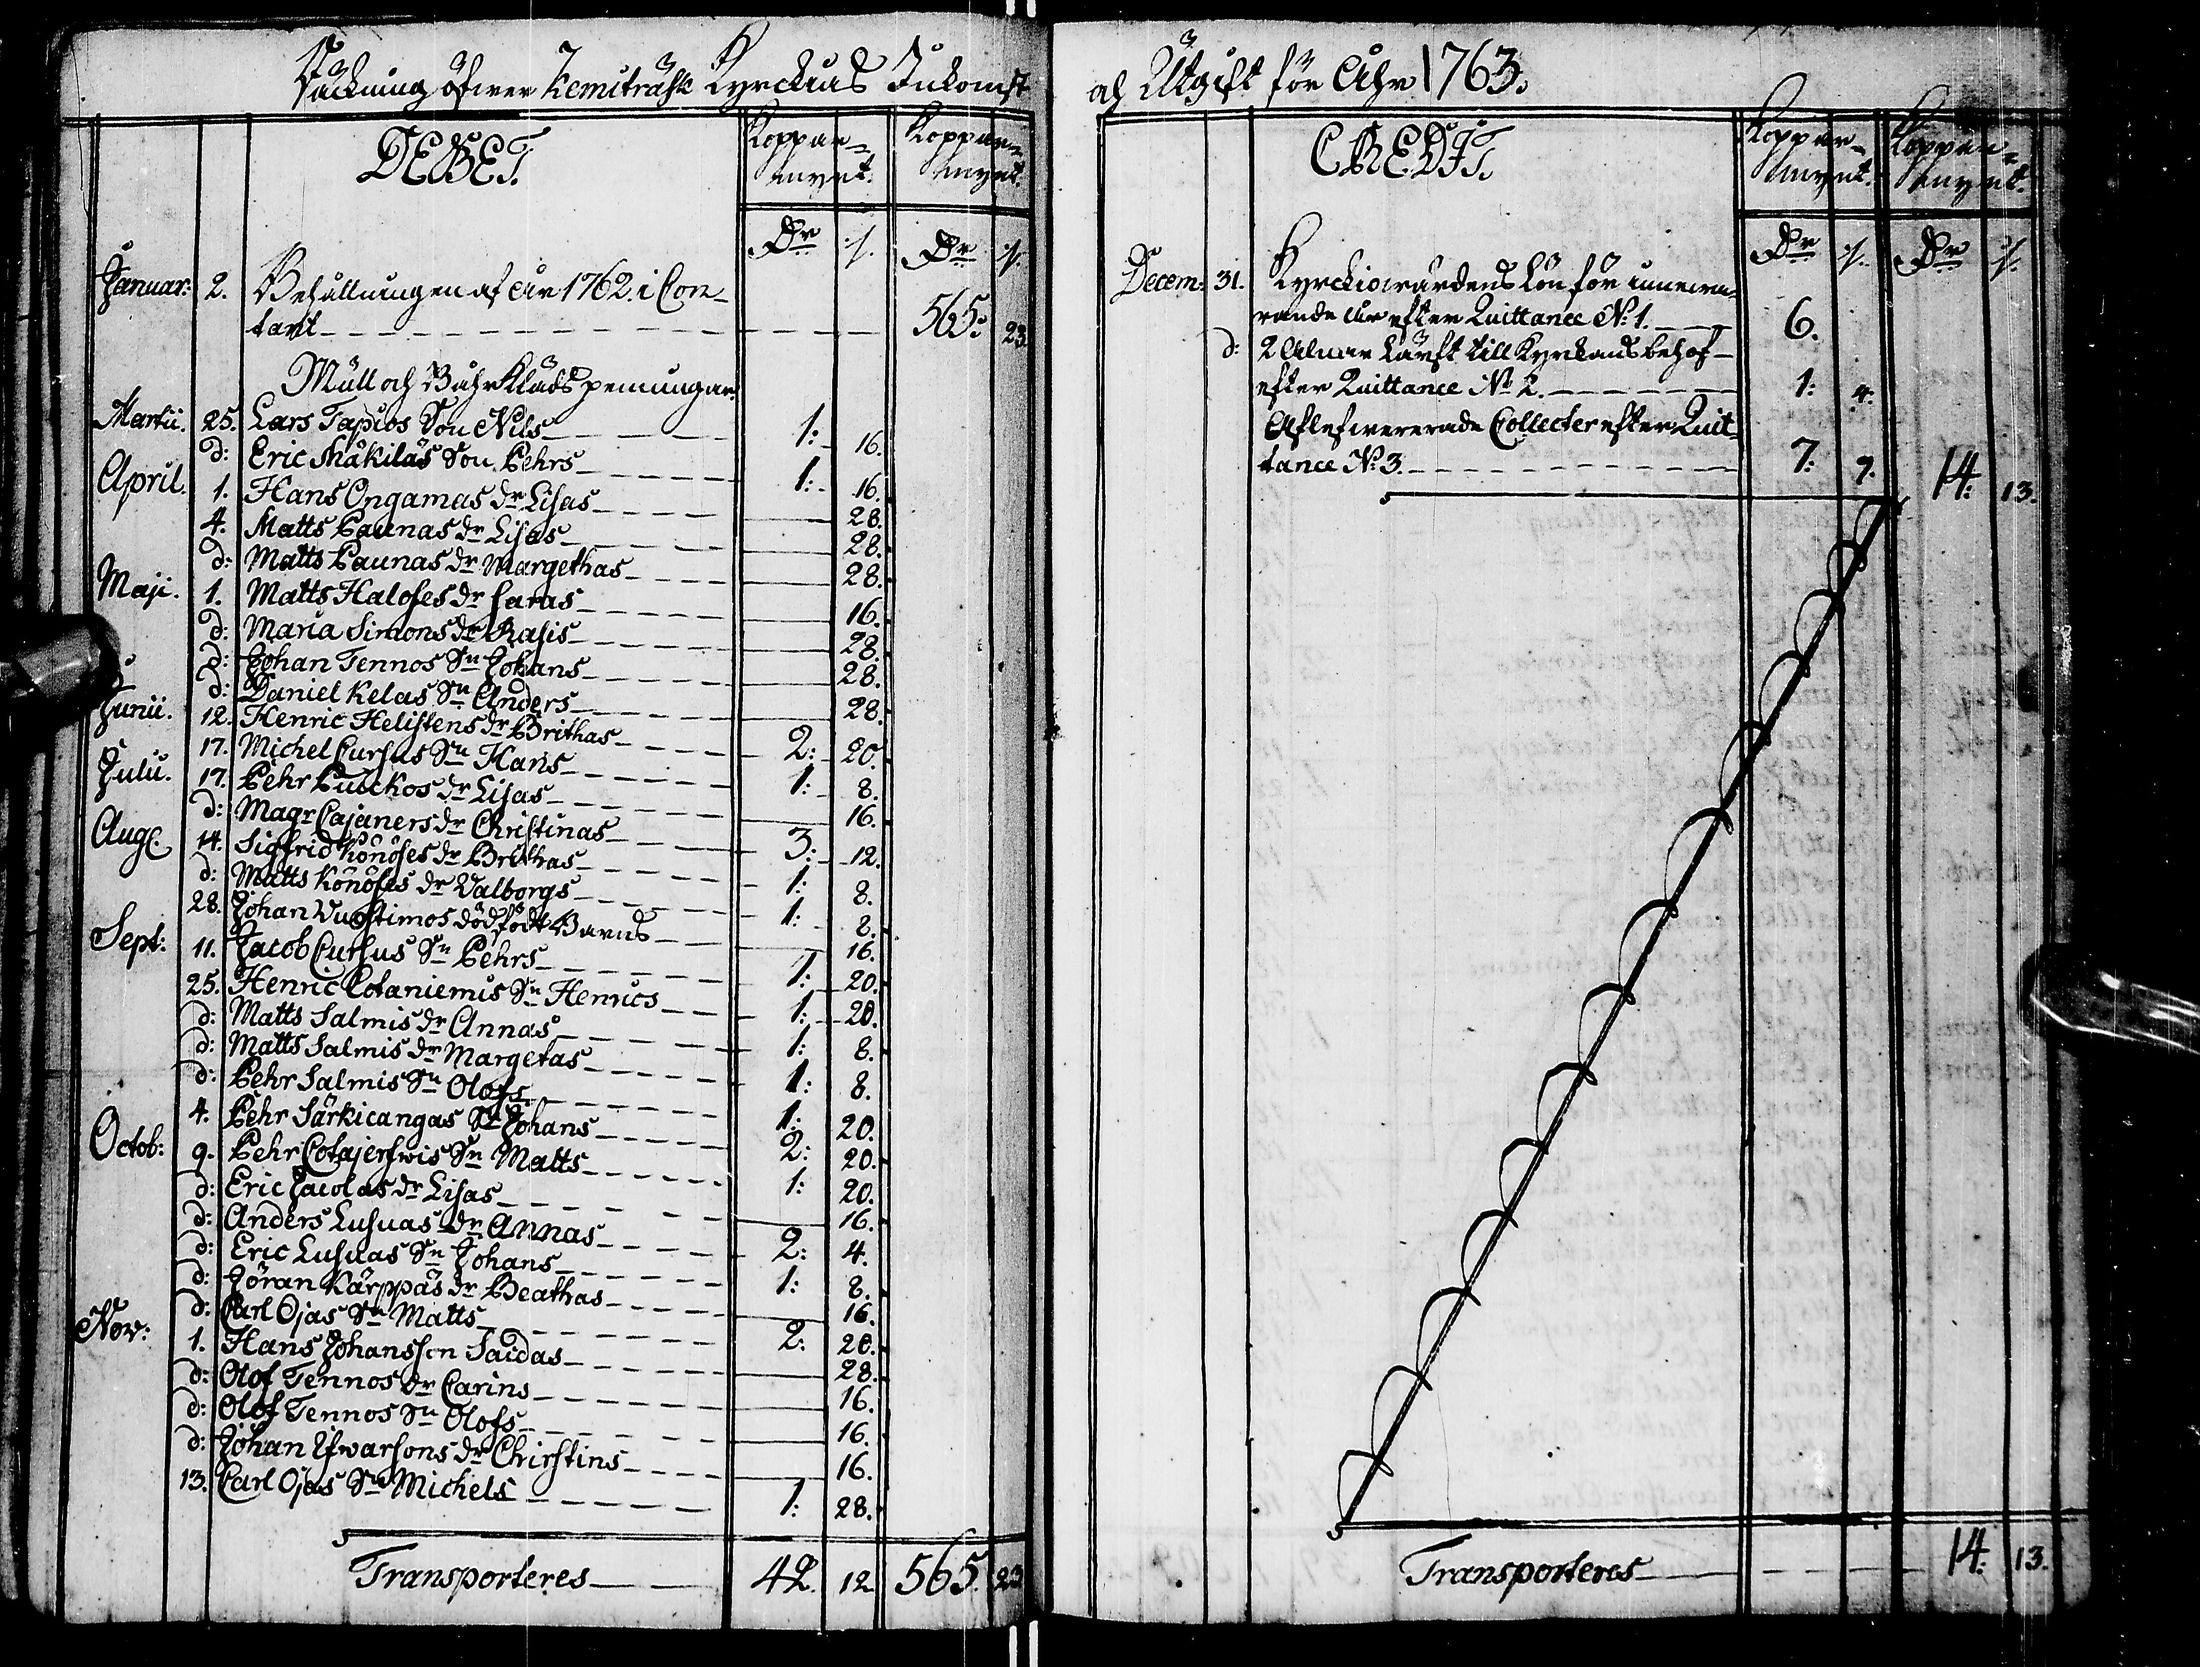 Räckning öfwer Kemiträsk Kyrckias Inkomst
DEBET.
Koppar=
mynt.
Koppar=
mynt.
Dr ./.
Dr ./.
Januar: 2. Behållningen af år 1762. i Con-
tant 565: 23.
Mull och Bahrkläds penningar.
Martii. 25. Lars Tapios Son Nils 1: 16.
d: Eric Mäkiläs Son Pehrs 1: 16.
April. 1. Hans Ongamas dr Lisas 28.
4. Matts Paunas dr Lisas 28.
d: Matts Paunas dr Margethas 28.
Maji. 1. Matts Haloses dr Saras 16.
d: Maria Simons dr Kasis 28.
d: Johan Tennos Sn Johans 28.
d: Daniel Kelas Sn Anders 28.
Junii. 12. Henric Helistens dr Brithas 2: 20.
17. Michel Cursus Sn Hans 1: 8.
Julii. 17. Pehr Puickos dr Lisas 16.
d: Magr Cajaners dr Christinas 3: 12.
Aug. 14. Sigfrid Könöses dr Brithas 1: 8.
d: Matts Könöses dr Valborgs 1: 8.
28. Johan Vuostimos dödfödt Barns 16.
Sept: 11. Jacob Cursus Sn Pehrs 1: 20.
25. Henric Cotaniemis Sn Henrics 1: 20.
d: Matts Salmis dr Annas 1: 8.
d: Matts Salmis dr Margetas 1: 8.
d: Pehr Salmis Sn Olofs 1: 20.
4. Pehr Särkicangas Sn Johans 2: 20.
Octob: 9. Pehr Cotajerfwis Sn Matts 1: 20.
d: Eric Jacolas dr Lisas 16.
d: Anders Lusuas dr Annas 2: 4.
d: Eric Lusuas Sn Johans 1: 8.
d: Jöran Kärppäs dr Beathas 16.
d: Carl Ojas Sn Matts 2: 20.
Nov: 1. Hans Johansson Saidas 28.
d: Olof Tennos dr Carins 16.
d: Olof Tennos Sn Olofs 16.
d: Johan Ifwarsons dr Christins 16.
13. Carl Ojas Sn Michels 1: 28.
Transporteres 42. 12 565. 23
och Utgift för Åhr 1763.
CREDIT.
Koppar=
mynt.
Koppar=
mynt.
Dr ./.
Dr ./.
Decem: 31. Kyrckiowärdens Lön för innewa-
rande år efter Quittance No 1. 6.
d: 2 Alnar Lärft till Kyrckans behof
efter Quittance No 2. 1: 4.
Aflefwererade Collecter efter Quit-
tance No 3. 7: 9. 14: 13.
Transporteres 14: 13.